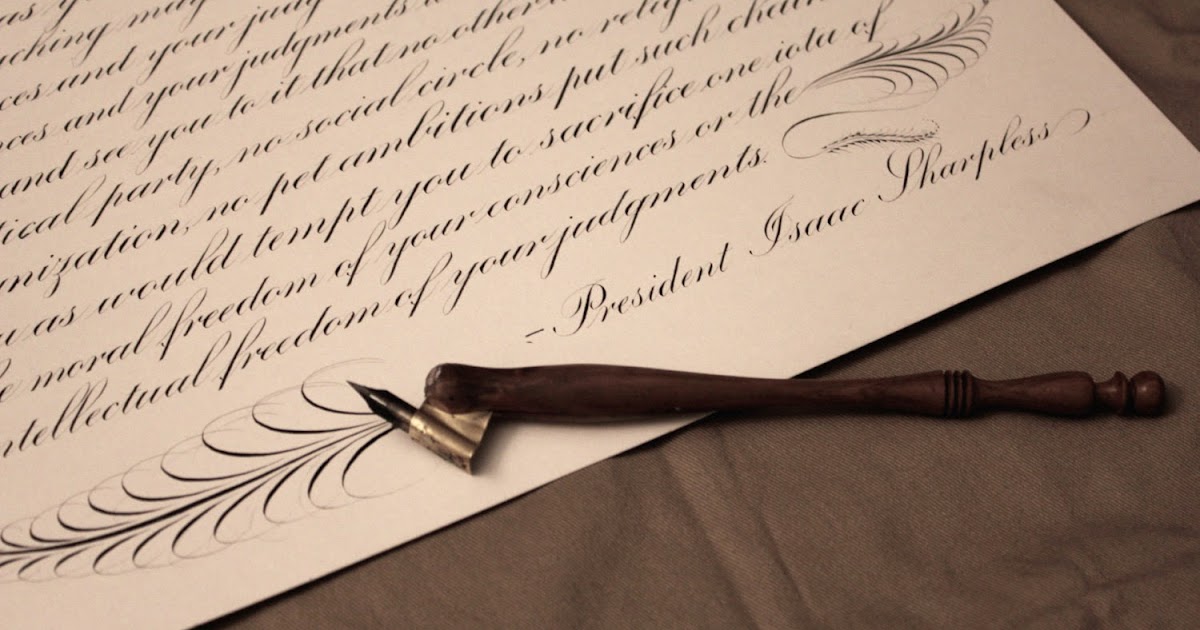 your
may
and your judg
and your judgments
and see you to it that no other
party, no social circle, no
no pet ambitions put such
as would tempt you to sacrifice one iota of
moral freedom of your consciences or the
intellectual freedom of your judgments.
-President Isaac Sharpless